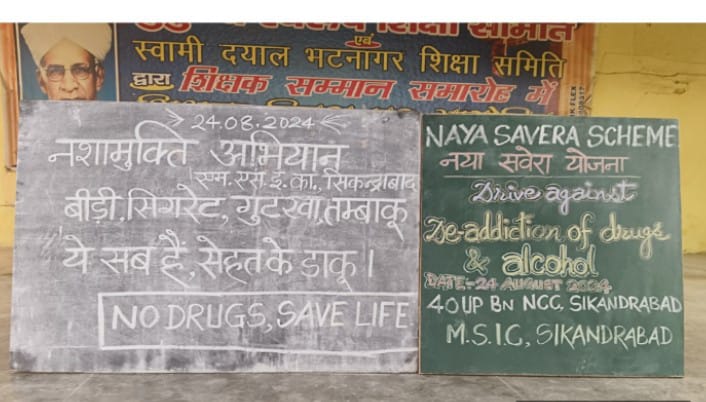 स्वामी दयाल भटनागर शिक्षा समिति
एवं
द्वारा शिक्षक सम्मान समारोह में
24.08.2024
नशामुक्ति अभियान
एम.एस.इ.का., सिकन्द्राबाद
बीड़ी,सिगरेट,गुटखा,तम्बाकू
ये सब हैं,सेहत के डाकू।
NO DRUGS, SAVE LIFE
NAYA SAVERA SCHEME
नया सवेरा योजना
Drive against
De-addiction of drugs
& alcohol
DATE:-24 AUGUST 2024
40 UP BN NCC, SIKANDRABAD
M.S.I.C, SIKANDRABAD